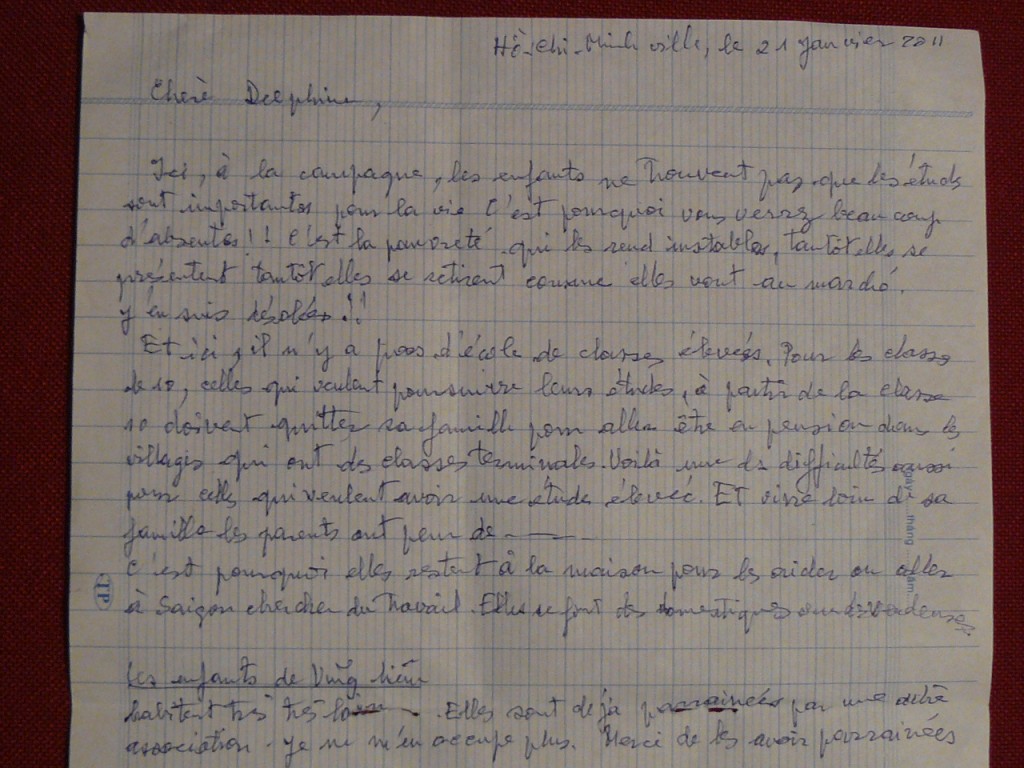 Hồ-Chi-Minh ville, le 21 janvier 2011
Chère Delphine,
Ici, à la campagne, les enfants ne trouvent pas que des études
sont importantes pour la vie C'est pourquoi vous verrez beaucoup
d'absentes!! C'est la pauvreté qui les rend instables, tantôt elles se
présentent tantôt elles se retirent comme elles vont au marché.
J'en suis désolée!!
Et ici, il n'y a pas d'école de classes élevées. Pour les classes
de 10, celles qui veulent poursuivre leurs études, à partir de la classe
10 doivent quitter sa famille pour aller être en pension dans les
villages qui ont des classes terminales. Voilà une de difficultés aussi
pour celles qui veulent avoir une étude élevée. Et vivre loin de sa
famille les parents ont peur de
C'est pourquoi elles restent à la maison pour les aider ou elles
à Saigon chercher du travail. Elles se font des domestiques
Les enfants de
habitent très très loin. Elles sont déjà parrainées par une autre
association. Je ne m'en occupe plus. Merci de les avoir parrainées
Ngày
tháng
năm
TP